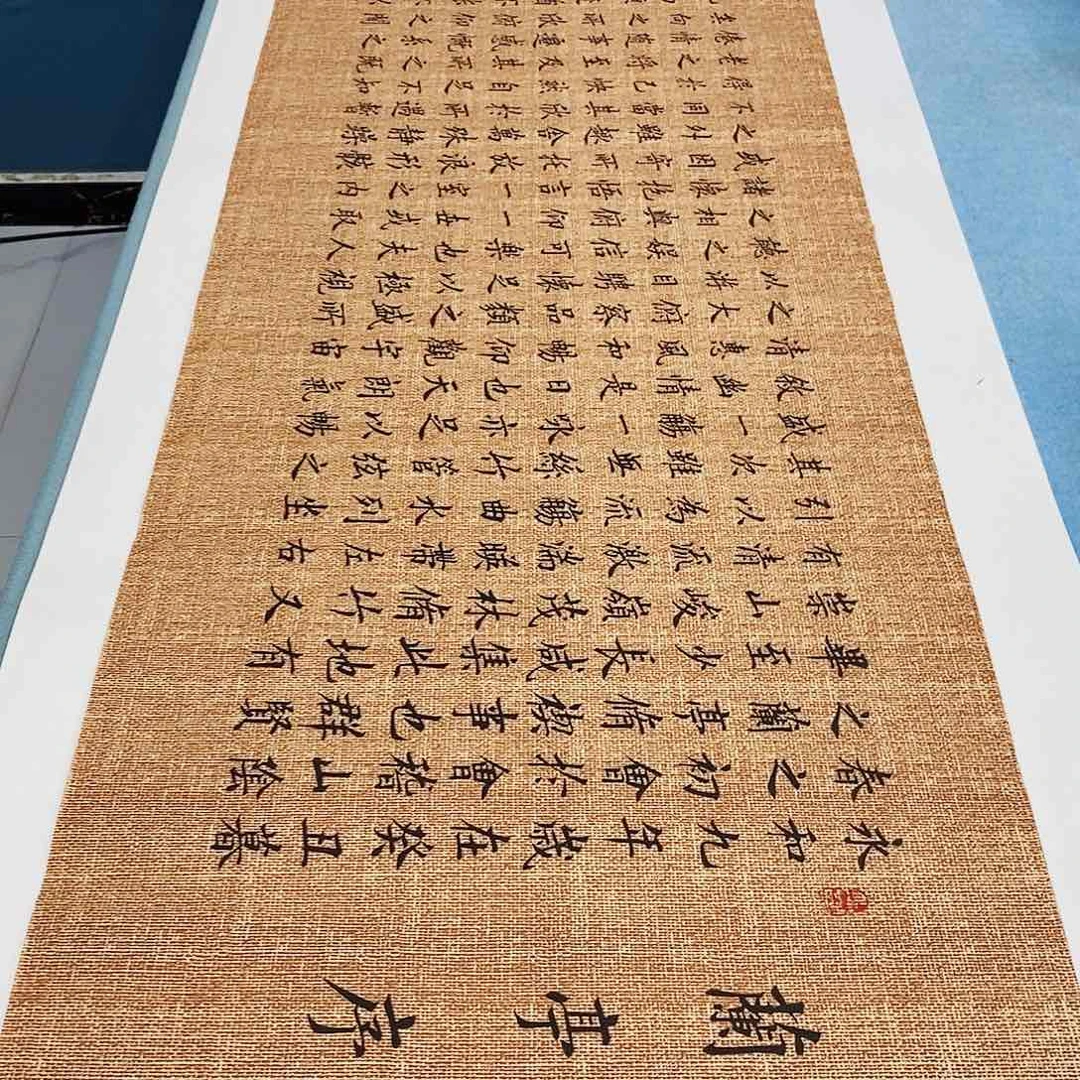 蘭亭序
永和九年歲在癸丑暮
春之初會於會稽山陰
之蘭亭脩禊事也群賢
畢至少長咸集此地有
崇山峻嶺茂林脩竹又
有清流激湍暎帶左右
引以為流觴曲水列坐
其次雖無絲竹管弦之
盛一觴一詠亦足以暢
敘幽情是日也天朗氣
清惠風和暢仰觀宇宙
之大俯察品類之盛所
以遊目騁懷足以極視
聽之娛信可樂也夫人
之相與俯仰一世或取
諸懷抱悟言一室之內
或因寄所託放浪形骸
之外雖趣舍萬殊靜躁
不同當其欣於所遇暫
得於己快然自足不知
老之將至及其所之既
倦情隨事遷感慨係之
矣向之所欣俛仰之閒